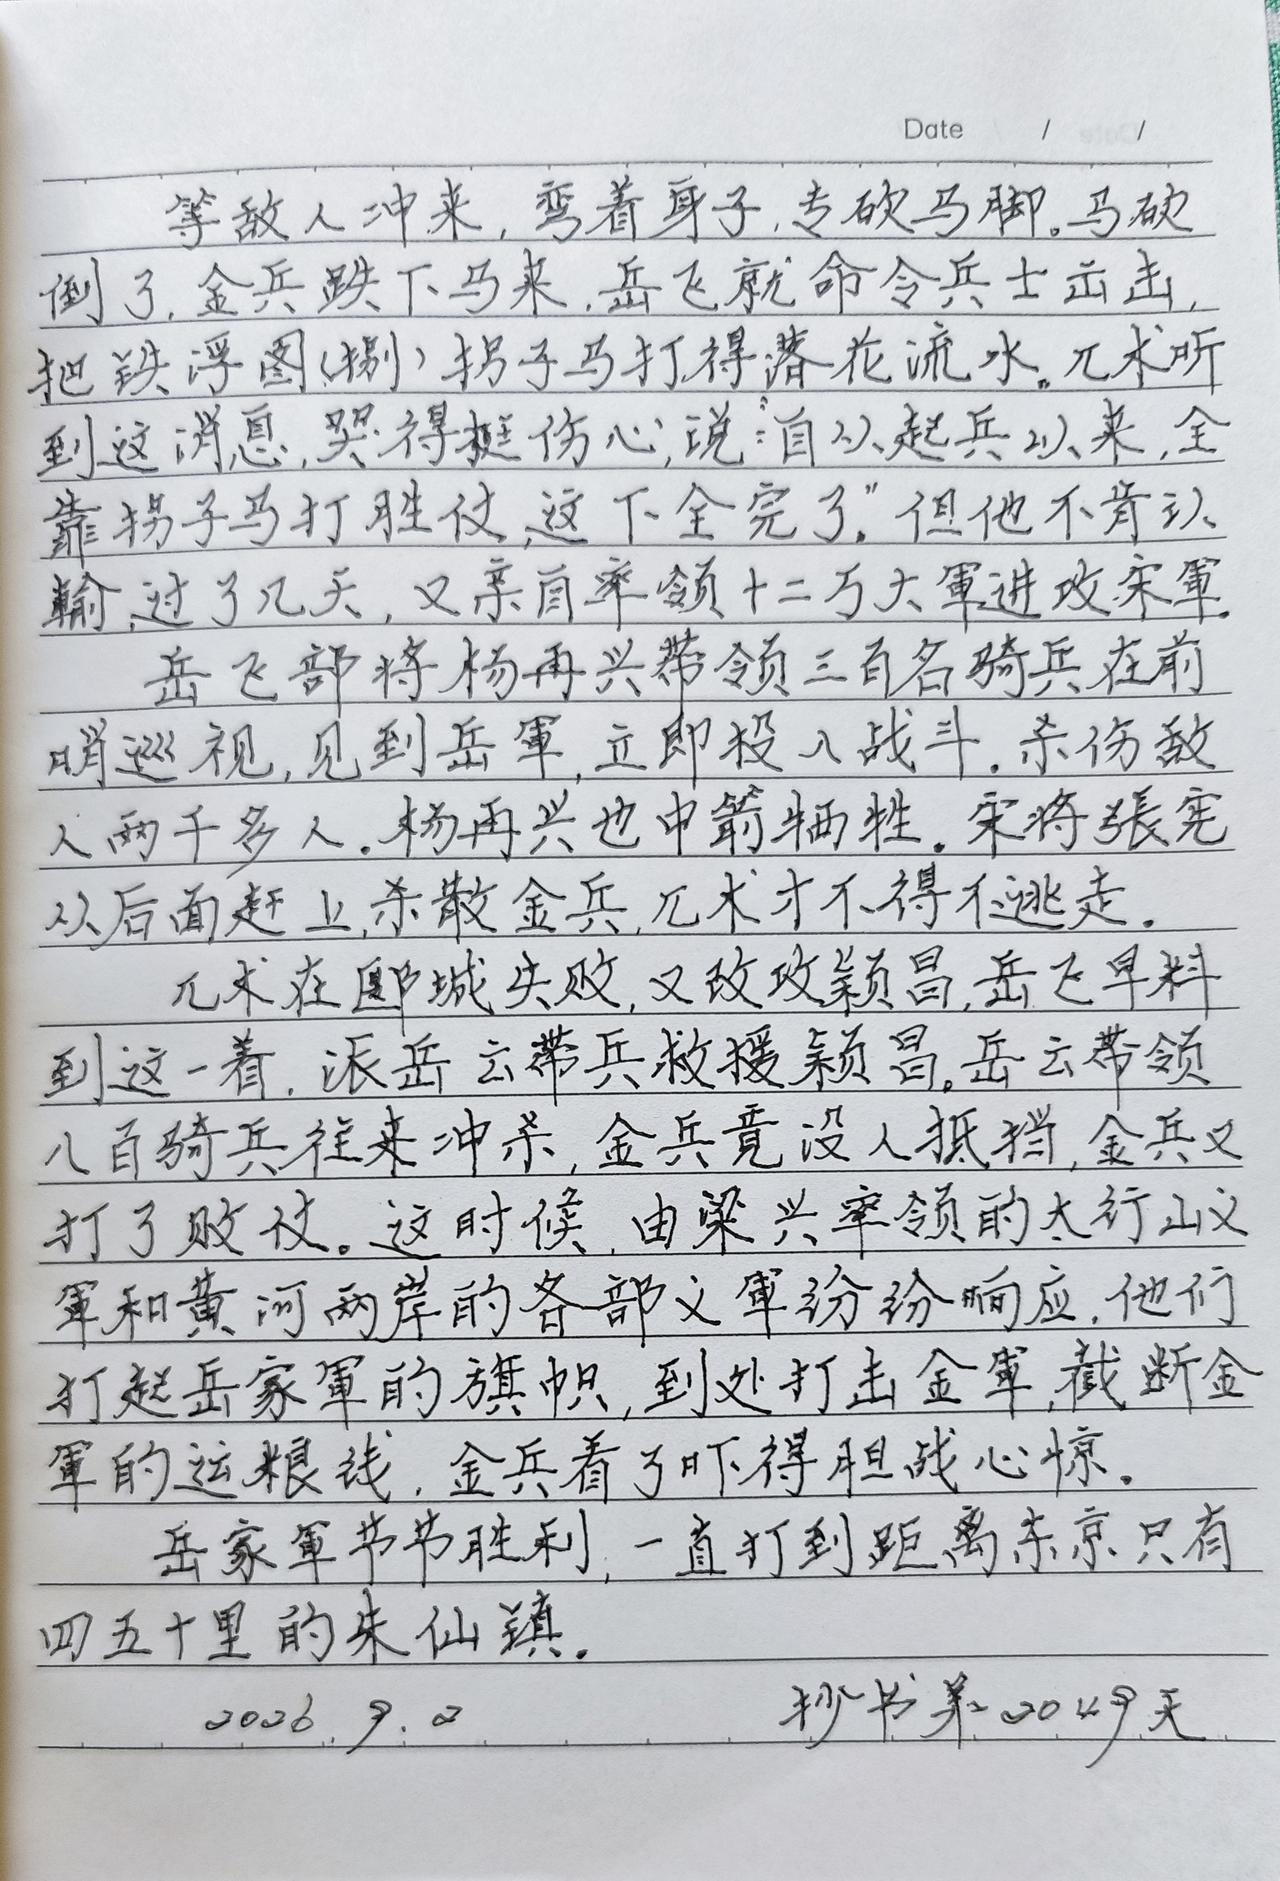 Date / /
等敌人冲来,弯着身子,专砍马脚。马砍
倒了,金兵跌下马来,岳飞就命令兵士出击,
把铁浮图(捌)拐子马打得落花流水。兀术听
到这消息,哭得挺伤心,说:"自从起兵以来,全
靠拐子马打胜仗,这下全完了。"但他不肯认
輸,过了几天,又亲自率领十二万大軍进攻宋軍。
岳飞部将杨再兴带领三百名骑兵在前
哨巡视,见到岳軍,立即投入战斗。杀伤敌
人两千多人。杨再兴也中箭牺牲。宋将張宪
从后面赶上,杀散金兵,兀术才不得不逃走。
兀术在郾城失败,又改攻颖昌,岳飞早料
到这一着,派岳云带兵救援颖昌。岳云带领
八百骑兵往来冲杀,金兵竟没人抵挡,金兵又
打了败仗。这时候,由梁兴率领的太行山义
軍和黄河两岸的各部义軍纷纷响应,他们
打起岳家軍的旗帜,到处打击金軍,截断金
軍的运粮线,金兵看了吓得胆战心惊。
岳家軍节节胜利,一直打到距离东京只有
四五十里的朱仙镇。
2026.9.2 抄书第2049天